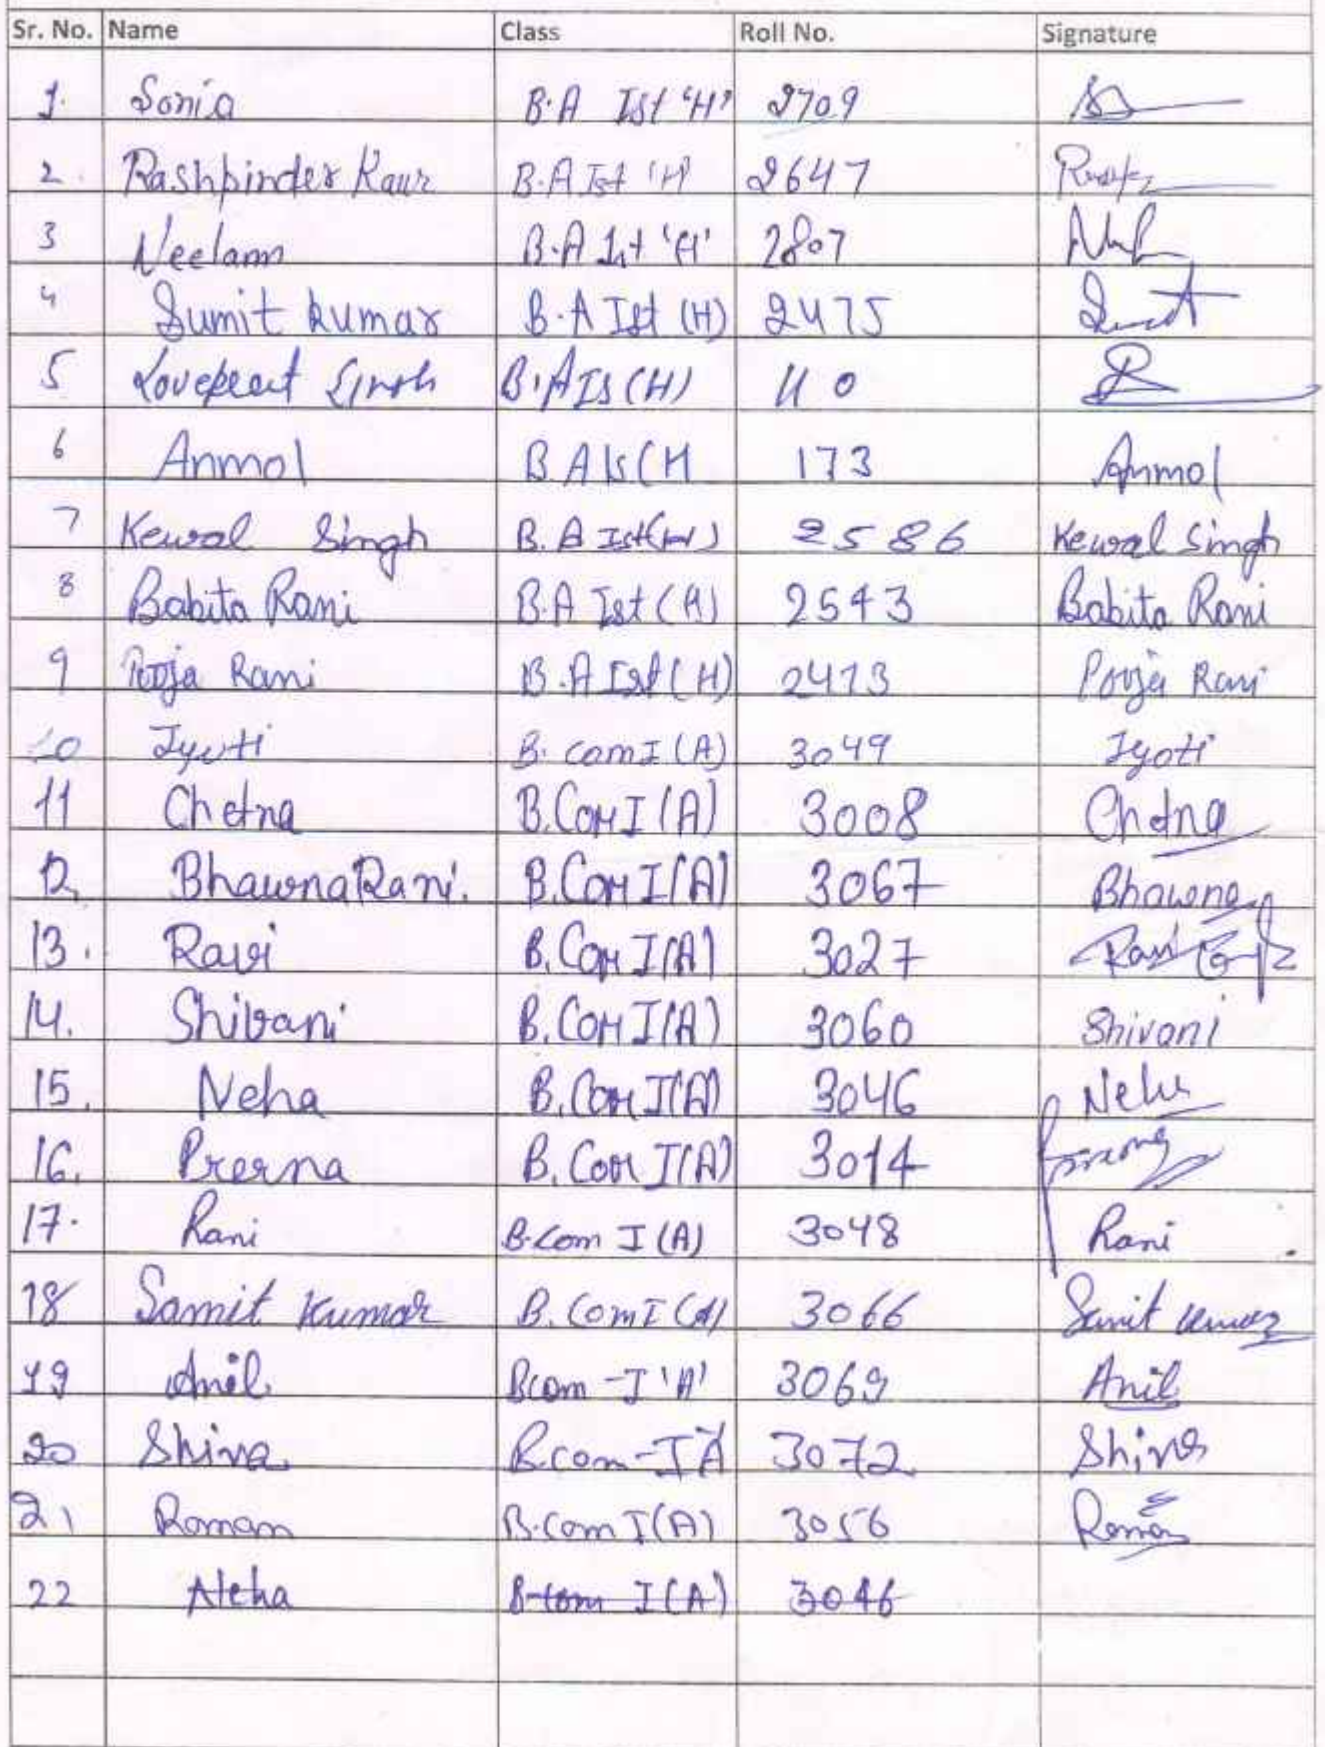 Sr. No. Name Class Roll No. Signature
1. Sonia B.A Ist 'H' 2709
2. Rashpinder Kaur B.A Ist 'H' 2647
3 Neelam B.A Ist 'H' 2807
4 Sumit kumar B.A Ist (H) 2475
5 Lovepreet Singh B.A Is (H) 110
6 Anmol B.A Is (H 173 Anmol
7 Kewal Singh B.A Ist (H) 2586 Kewal Singh
8 Babita Rani B.A Ist (H) 2543 Babita Rani
9 Pooja Rani B.A Ist (H) 2473 Pooja Rani
10 Jyoti B. Com I (A) 3049 Jyoti
11 Chetna B.Com I (A) 3008 Chetna
12, Bhawna Rani. B.Com I (A) 3067 Bhawna
13. Ravi B.Com I(A) 3027 Ravi
14. Shivani B.Com I(A) 3060 Shivani
15. Neha B.Com I(A) 3046 Neha
16. Prerna B.Com I(A) 3014
17. Rani B.Com I (A) 3048 Rani
18 Samit Kumar B.Com I (A) 3066 Samit Kumar
19 Anil Bcom-I 'A' 3069 Anil
20 Shiva B.com-I A 3072 Shiva
21 Raman B.Com I(A) 3056 Raman
22 Neha B.com I(A) 3046